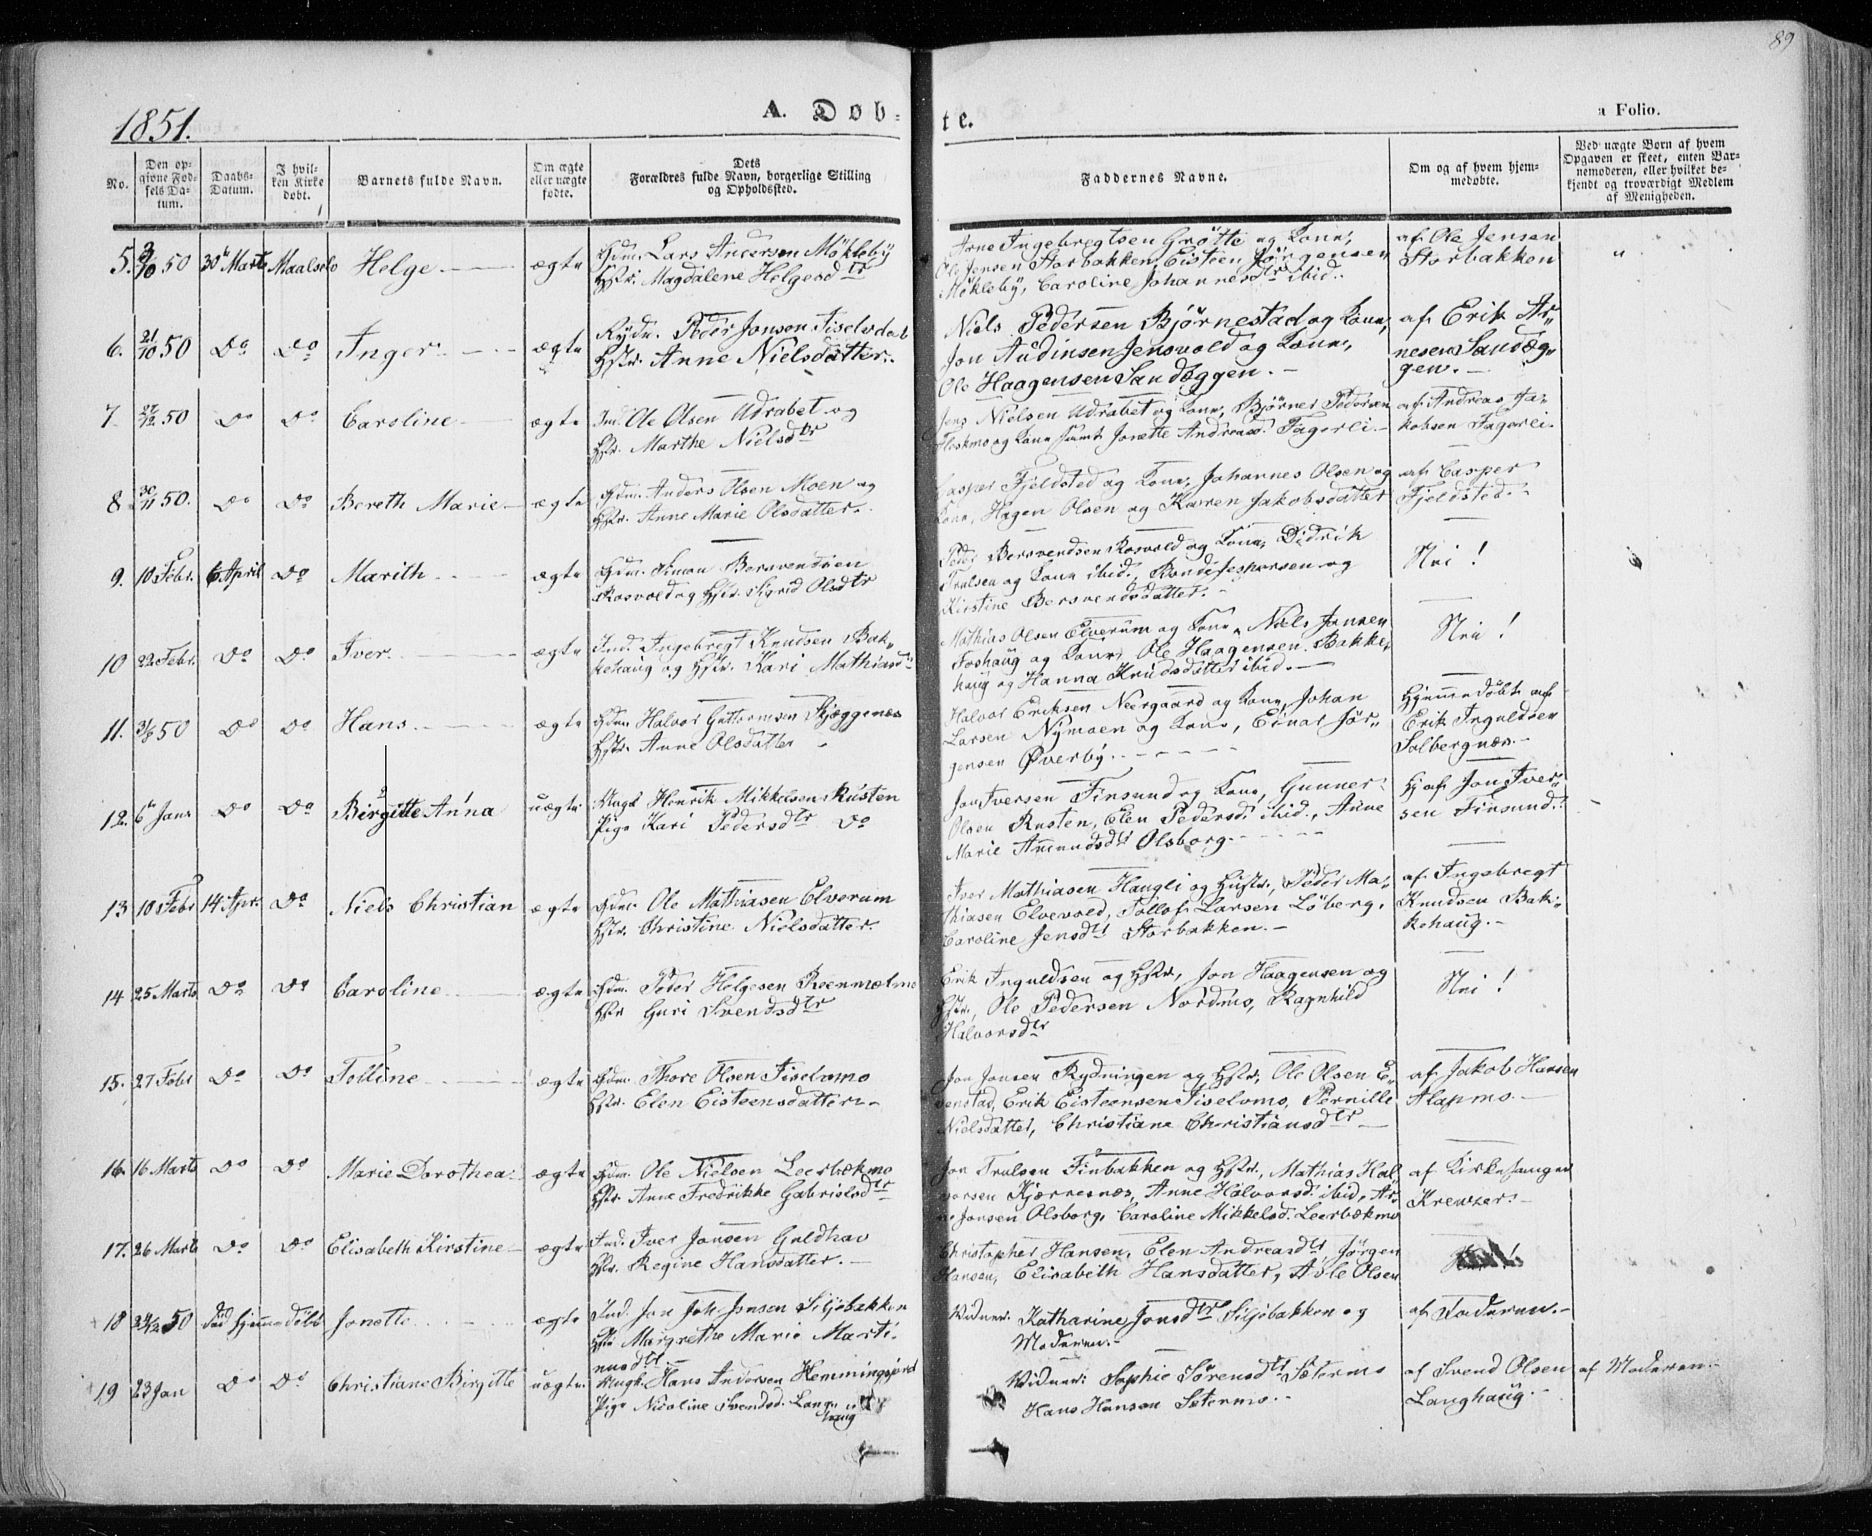 89
1851.
A. Døb-
te.
a Folio.
No.
Den op-
givne Fød-
sels Da-
tum.
Daabs-
Datum.
I hvil-
ken Kirke
døbt.
Barnets fulde Navn.
Om ægte
eller uægte
fødte.
Dets
Forældres fulde Navn, borgerlige Stilling
og Opholdssted.
Faddernes Navne.
Om og af hvem hjem-
medøbte.
Ved uægte Børn af hvem
Opgaven er skeet, enten Bar-
nemoderen, eller hvilket be-
kjendt og troværdigt Medlem
af Menigheden.
5. 3/10 50 30te Marts Maalselv Helge ægte
Gdm. Lars Andersen Møkleby
Hstr. Magdalene Helgesdtr
Arne Ingebregtsen Grøtte og Kone,
Ole Jensen Storbakken, Eisteen Jørgensen
Møkleby, Caroline Johannesdtr ibid.
af Ole Jensen
Storbakken
"
6. 21/10 50 Do Do Inger ægte
Rydn. Peder Jonsen Fiselvdal
Hstr. Anne Nielsdatter.
Niels Pedersen Bjørnestad og Kone,
Jon Audinsen Jensvold og Kone,
Ole Haagensen Sandeggen.
af Erik Ar-
nesen Sandæg-
gen.
7 27/12 50 Do Do Caroline ægte
Ind. Ole Olsen Udrabet og
Hstr. Marthe Nielsdtr
Jens Nielsen Udrabet og Kone, Bjørner Pedersen
Moskmo og Kone samt Jonette Andreasd. Fagerli.
af Andreas Ja-
kobsen Fagerli.
8 30/11 50. Do Do Bereth Marie ægte
Gdm. Anders Olsen Moen og
Hstr. Anne Marie Olsdatter.
Casper Fjeldsted og Kone, Johannes Olsen og
Kone, Hagen Olsen og Karen Jakobsdatter
af Casper
Fjeldsted.
9. 10 Febr. 6 April Do Marith ægte
Gdm. Simon Bersvendsen
Rosvold og Hstr. Sigrid Olsdtr
Peder Bersvendsen Rosvold og Kone, Didrik
Trulsen og Kone ibid. Rande Jespersen og
Kirstine Bersvendsdatter.
Nei!
10 22 Febr. Do Do Iver ægte
Ind. Ingebregt Knudsen Bak-
kehaug og Hstr. Kari Mathiasd.
Mathias Olsen Elverum og Kone, Niels Jensen
Foshaug og Kone, Ole Haagensen Bakke-
haug og Hanna Knudsdatter ibid.
Nei!
11. 31/8 50 Do Do Hans ægte
Gdm. Halvor Guttormsen Skjæggenæs
Hstr. Anne Olsdatter
Halvor Eriksen Neergaard og Kone, Johan
Larsen Nymoen og Kone, Einar Jør-
gensen Øverby.
Hjemmedøbt af
Erik Inguldsen
Solbergnæs.
12. 6te Janr Do Do Birgitte Anna uægte
Ungk. Henrik Mikkelsen Rusten
Pige Kari Pedersdtr Do
Jon Iversen Finsund og Kone, Gunner
Olsen Rusten, Elen Pedersd. ibid., Anne
Marie Amundsdtr Olsborg.
Hj af Jon Iver-
sen Finsund.
13 10 Febr 14 Apr. Do Niels Christian ægte
Gdm. Ole Mathiasen Elverum
Hstr. Christine Nielsdatter.
Iver Mathiasen Haugli og Hustr., Peder Ma-
thiasen Elvevold, Tollof Larsen Løberg,
Caroline Jensdtr Storbakken.
af Ingebregt
Knudsen Bak-
kehaug.
14 25 Marts Do Do Caroline ægte
Gdm. Peder Helgesen Reenmælmo
Hstr Guri Svendsdtr
Erik Inguldsen og Hstr, Jon Haagensen og
Hstr, Ole Pedersen Nordmo, Ragnhild
Halvorsdtr
Nei!
15. 27 Febr Do Do Tolline ægte
Gdm. Thore Olsen Fiselvmo
Hstr. Elen Eisteensdatter.
Jon Jonsen Rydningen og Hstr, Ole Olsen E-
venstad, Erik Eisteensen Fiselvmo, Pernille
Nielsdatter, Christiane Christiansdtr
af Jakob Hansen
Alapmo.
16. 16 Marts Do Do Marie Dorothea ægte
Gdm. Ole Nielsen Leerbækmo
Hstr. Anne Fredrikke Gabrielsdtr
Jon Trulsen Finbakken og Hstr., Mathias Hal-
vorsen Kjærresnæs, Anne Halvorsd. ibid, Ar-
ne Jonsen Olsborg, Caroline Mikkelsd. Leerbækmo
af Kirkesanger
Krewser.
17. 26 Marts Do Do Elisabeth Kirstine ægte
Ind. Iver Jonsen Guldhav
Hstr. Regine Hansdatter.
Christopher Hansen, Elen Andreasdtr, Jørgen
Hansen, Elisabeth Hansdatter, Asle Olsen
Nei!
18 24/12 50 Død hjemmedøbt Jonette ægte
Ind. Jon Joh. Jonsen Siljebakken
Hstr Margrethe Marie Marti-
nusdtr.
Vidner: Katharine Jonsdtr Siljebakken og
Moderen.
af Faderen.
19 23 Jan Do Do Christiane Birgitte uægte
Ungk. Hans Andersen Hemmingsjord
Pige Nicoline Svendsd. Lang-
haug
Vidner: Sophie Sørensdtr Sætermo
Hans Hansen Sætermo.
af Svend Olsen
Langhaug.
af Moderen.